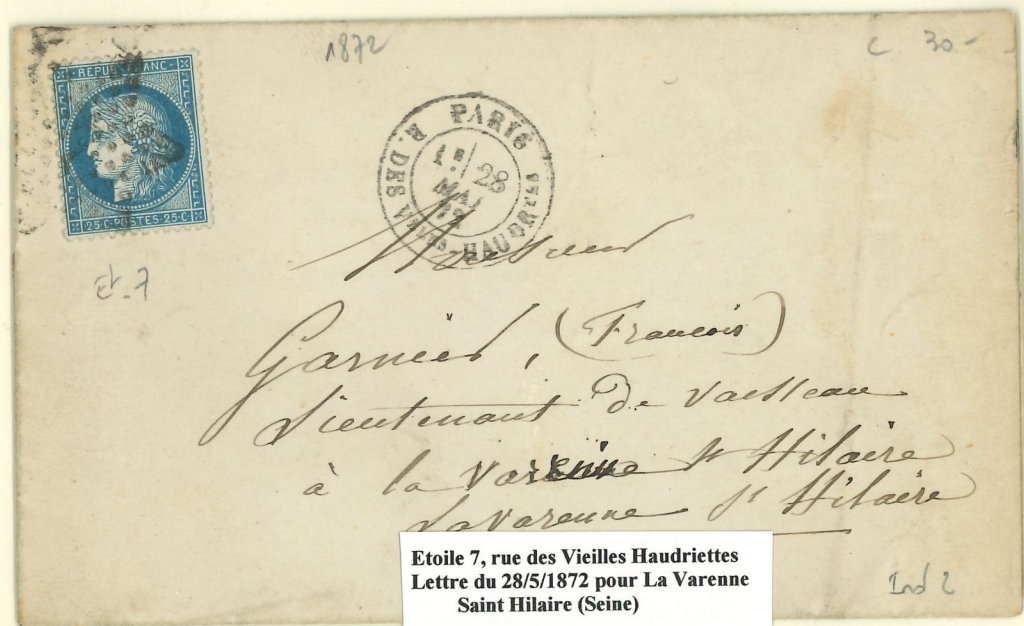 1872
c 30-
REPUB FRANC
25 C POSTES 25 C
PARIS
R. DES Vlles HAUDRttes
28
MAI
72
Et. 7
Monsieur
Garnier, (Francois)
Lieutenant de vaisseau
à la Varenne St Hilaire
La Varenne St Hilaire
Ind 2
Etoile 7, rue des Vieilles Haudriettes
Lettre du 28/5/1872 pour La Varenne
Saint Hilaire (Seine)